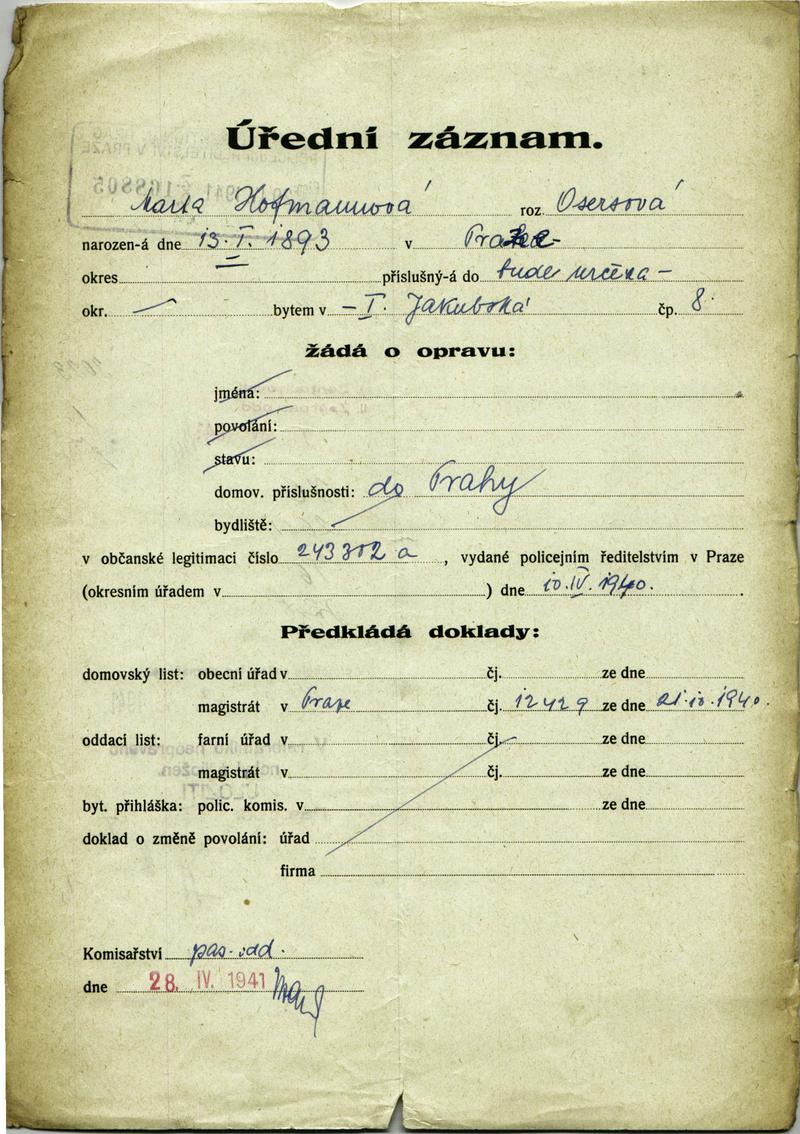 Úřední záznam.
Marta Hofmannová roz. Osersová
narozen-á dne 13. I. 1893 v Praze
okres příslušný-á do bude určena
okr. bytem v I. Jakubská čp. 8
žádá o opravu:
jména:
povolání:
stavu:
domov. příslušnosti: do Prahy
bydliště:
v občanské legitimaci číslo 243302 a, vydané policejním ředitelstvím v Praze
(okresním úřadem v ) dne 10. IV. 1940.
Předkládá doklady:
domovský list: obecní úřad v čj. ze dne
magistrát v Praze čj. 12429 ze dne 21. 10. 1940.
oddací list: farní úřad v čj. ze dne
magistrát v čj. ze dne
byt. přihláška: polic. komis. v ze dne
doklad o změně povolání: úřad
firma
Komisařství pas. odd.
dne 28. IV. 1941